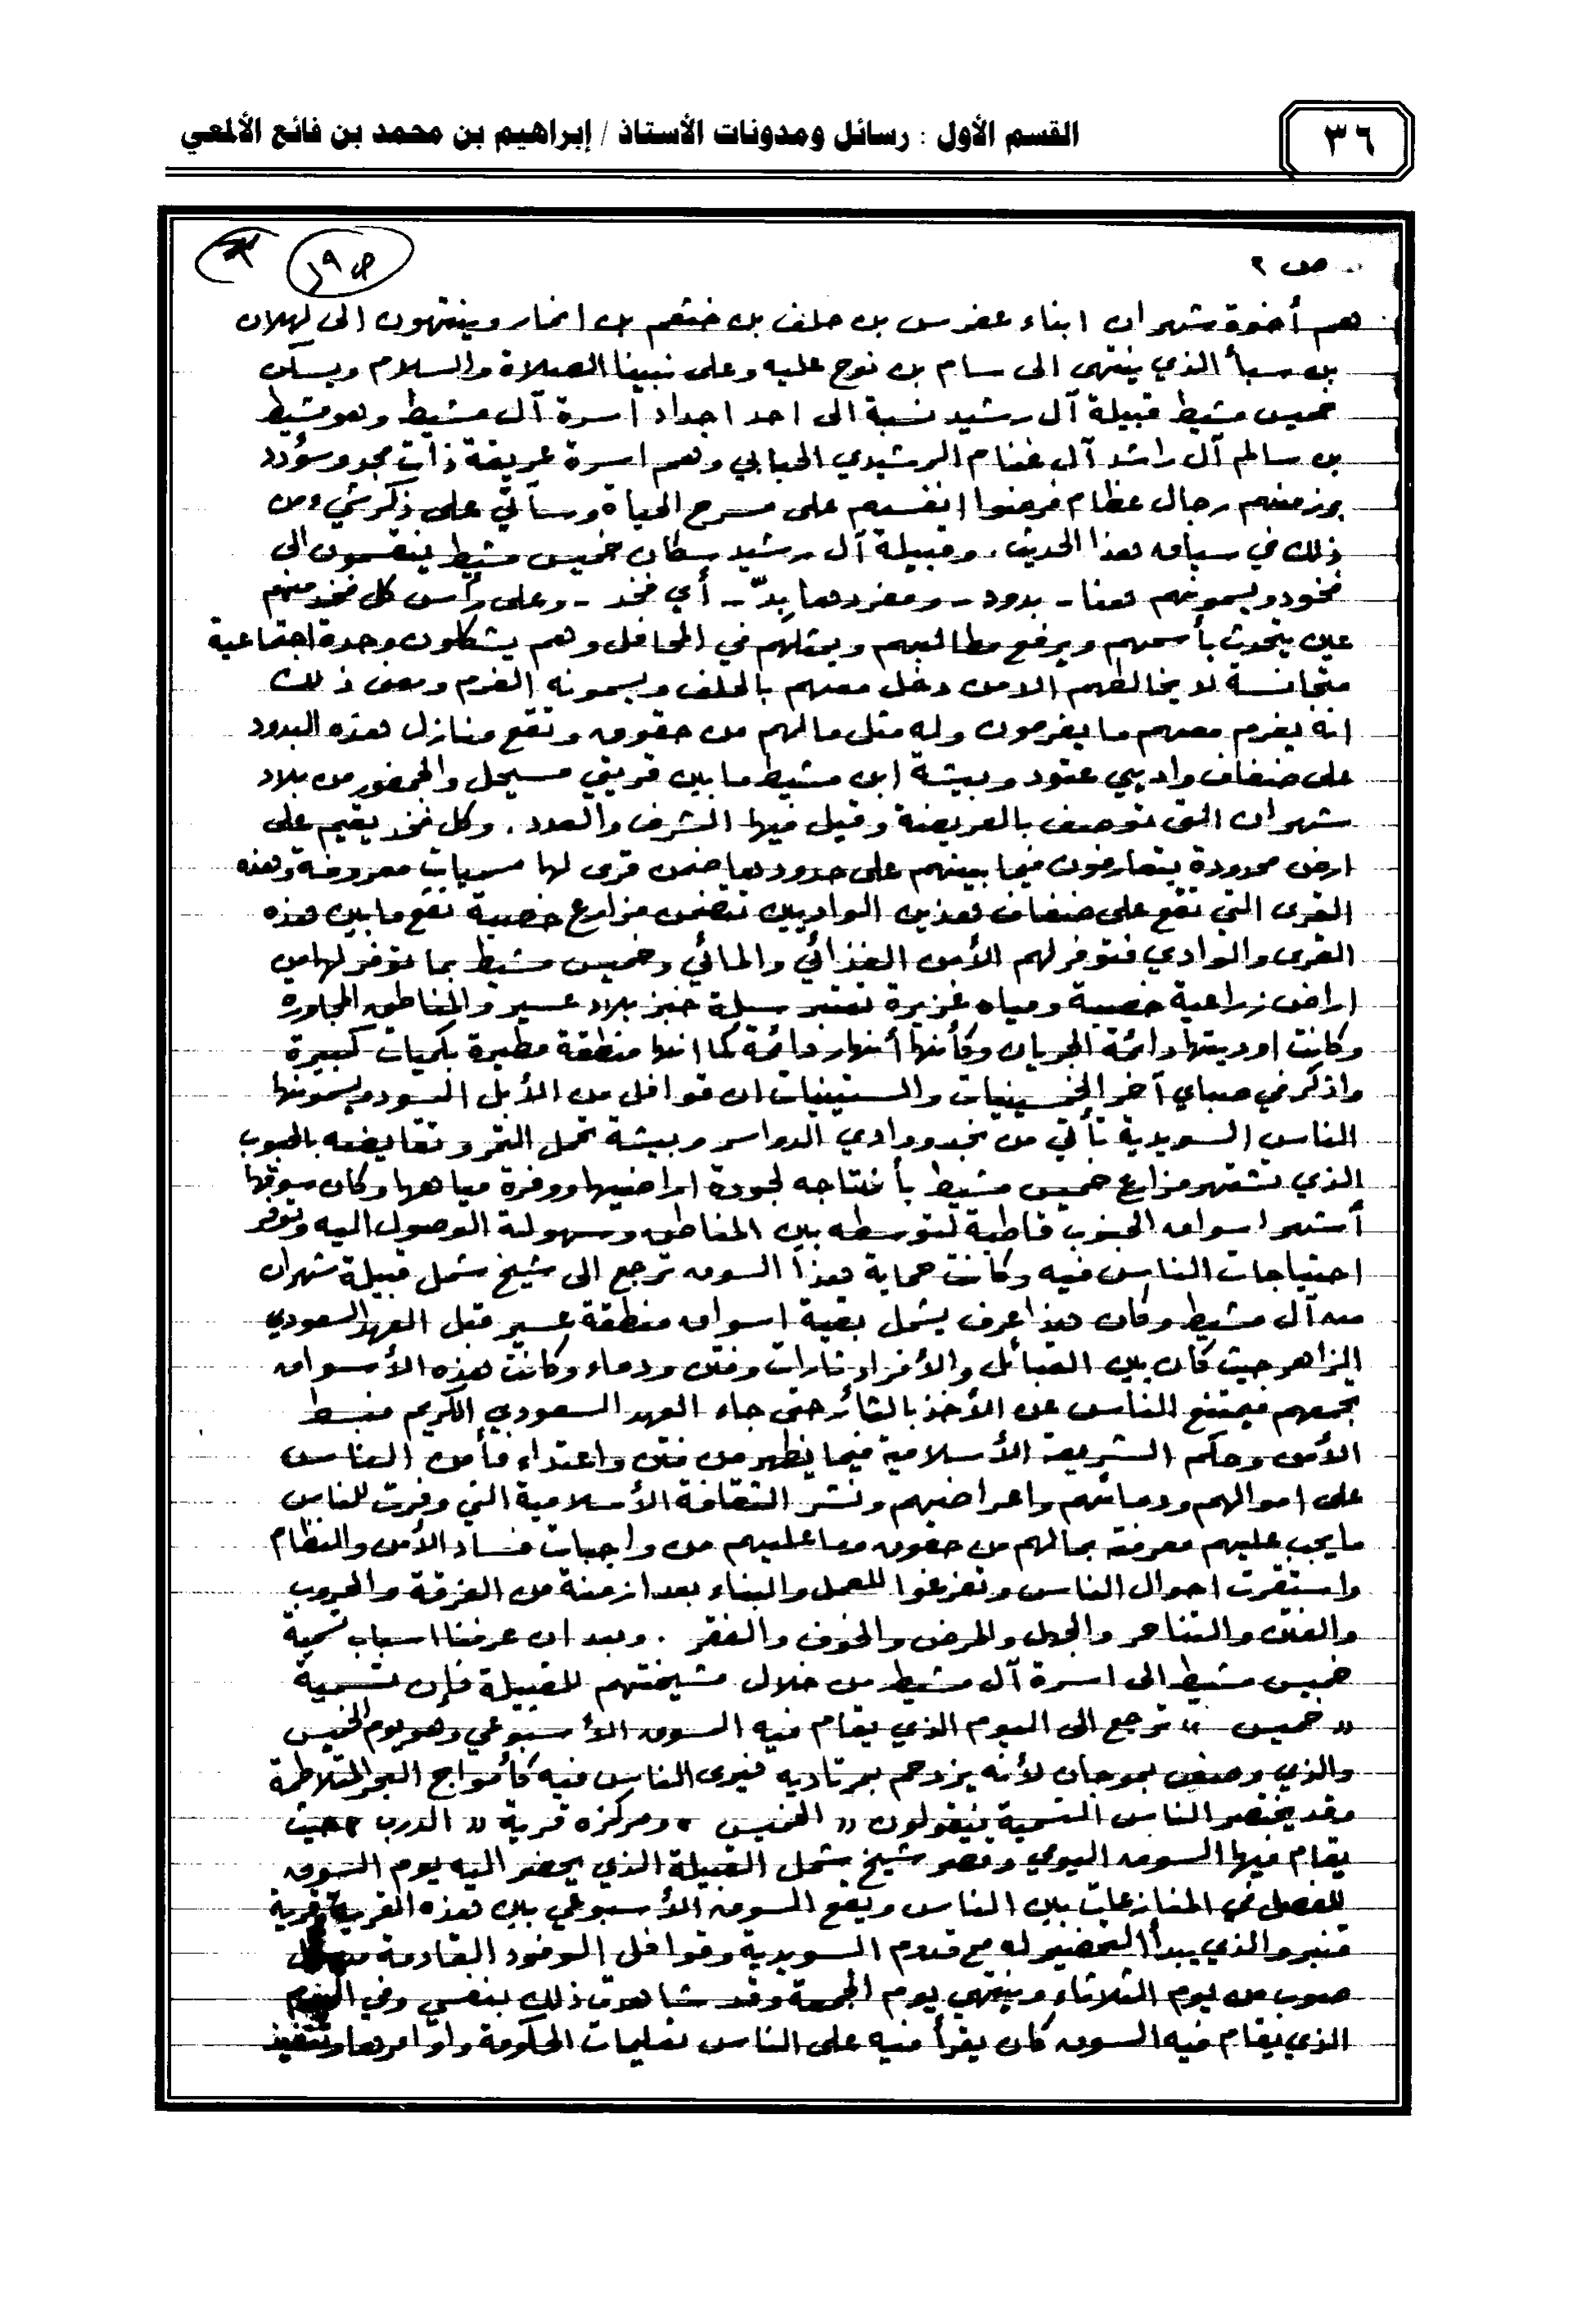 ٣٦
القسم الأول : رسائل ومدونات الأستاذ / إبراهيم بن محمد بن فائع الألمعي
ص ٢
ص ١٩
هم أخوة شهران ابناء عفرس بن حلف بن خثعم بن انمار وينتهون الى كهلان
بن سبأ الذي ينتهى الى سام بن نوح عليه وعلى نبينا الصلاة والسلام ويسكن
خميس مشيط قبيلة آل رشيد نسبة الى احد اجداد اسرة آل مشيط وهو مشيط
بن سالم آل راشد آل غنام الرشيدي الحبابي وهم اسرة عريقة ذات مجد وسؤدد
برز منهم رجال عظام فرضوا انفسهم على مسرح الحياة وسآتي على ذكر شيء من
ذلك في سياق هذا الحديث. وقبيلة آل رشيد سكان خميس مشيط ينقسمون الى
فخود ويسمونهم هنا - بدود - ومفردها بِدّ - أي فخذ - وعلى رأس كل فخذ منهم
عين يتحدث بأسمهم ويرفع مطالبهم ويمثلهم في المحافل وهم يشكلون وحدة اجتماعية
متجانسة لا يخالطهم الا من دخل معهم بالحلف ويسمونه الغرم ومعنى ذلك
انه يغرم معهم ما يغرمون وله مثل مالهم من حقوق وتقع منازل هذه البدود
على ضفاف واديي عتود وبيشة ابن مشيط ما بين قريتي مسيحل والمحضور من بلاد
شهران التي توصف بالعريضة وقيل فيها الشرف والعدد. وكل فخذ يقيم على
ارض محدودة يتعارفون فيما بينهم على حدودها ضمن قرى لها مسميات معروفة وهذه
القرى التي تقع على ضفاف هذين الواديين تتضمن مزارع خصبة تقع ما بين هذه
القرى والوادي فتوفر لهم الأمن الغذائي والمائي وخميس مشيط بما توفر لها من
اراض زراعية خصبة ومياه غزيرة تعتبر سلة خبز بلاد عسير والمناطق المجاورة
وكانت اوديتها دائمة الجريان وكأنها أنهار دائمة كما انها منطقة مطيرة بكميات كبيرة
واذكر في صباي آخر الخمسينيات والستينيات ان قوافل من الأبل السود ويسمونها
الناس السويدية تأتي من نجد ووادي الدواسر وبيشة تحمل التمر وتقايضه بالحبوب
الذي تشتهر مزارع خميس مشيط بأنتاجه لجودة اراضيها ووفرة مياهها وكان سوقها
أشهر اسواق الجنوب قاطبة لتوسطه بين المناطق وسهولة الوصول اليه وتوفر
احتياجات الناس فيه وكانت حماية هذا السوق ترجع الى شيخ شمل قبيلة شهران
من آل مشيط وكان هذا عرف يشمل بقية اسواق منطقة عسير قبل العهد السعودي
الزاهر حيث كان بين القبائل والأفراد ثارات وفتن ودماء وكانت هذه الأسواق
تجمعهم فيمتنع الناس عن الأخذ بالثأر حتى جاء العهد السعودي الكريم فبسط
الأمن وحكم الشريعة الأسلامية فيما يظهر من فتن واعتداء فأمن الناس
على اموالهم ودمائهم واعراضهم ونشر الثقافة الأسلامية التي وفرت للناس
ما يجب عليهم معرفته بمالهم من حقوق وما عليهم من واجبات فساد الأمن والنظام
واستقرت احوال الناس وتفرغوا للعمل والبناء بعد ازمنة من الفرقة والحروب
والفتن والتناحر والجهل والمرض والخوف والفقر . وبعد ان عرفنا اسباب تسمية
خميس مشيط الى اسرة آل مشيط من خلال مشيختهم للقبيلة فإن تسمية
« خميس » ترجع الى اليوم الذي يقام فيه السوق الأسبوعي وهو يوم الخميس
والذي وصف بموجان لأنه يزدحم بمرتاديه فيرى الناس فيه كأمواج البحر المتلاطمة
وقد يختصر الناس التسمية فيقولون « الخميس » ومركزه قرية « الدرب » حيث
يقام فيها السوق اليومي وقصر شيخ شمل القبيلة الذي يحضر اليه يوم السوق
للفصل في المنازعات بين الناس ويقع السوق الأسبوعي بين هذه القرية وقرية
قنبر والذي يبدأ التحضير له مع قدوم السويدية وقوافل الوفود القادمة من كل
صوب من يوم الثلاثاء وينتهي يوم الجمعة وقد شاهدت ذلك بنفسي وفي اليوم
الذي يقام فيه السوق كان يقرأ فيه على الناس تعليمات الحكومة واوامرها وتنفيذ